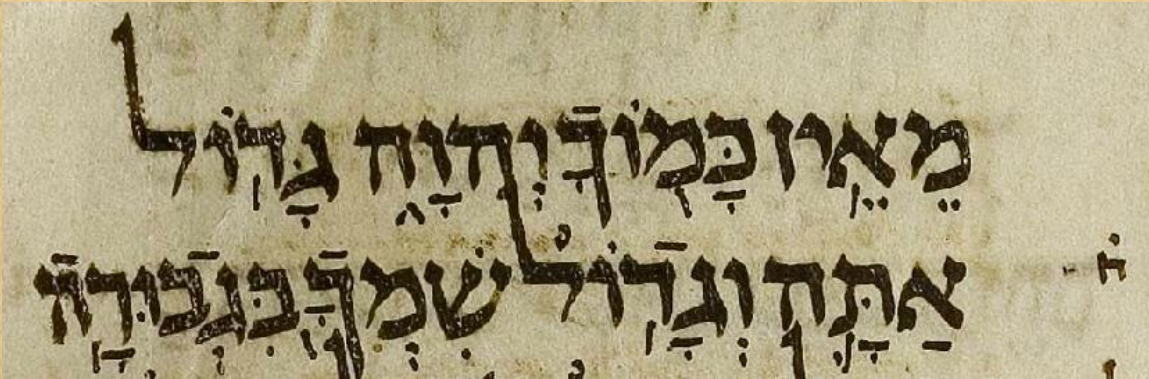 מֵאֵ֥ין כָּמ֖וֹךָ יְהוָ֑ה גָּד֥וֹל
ח̇ אַתָּ֛ה וְגָד֥וֹל שִׁמְךָ֖ בִּגְבוּרָֽה